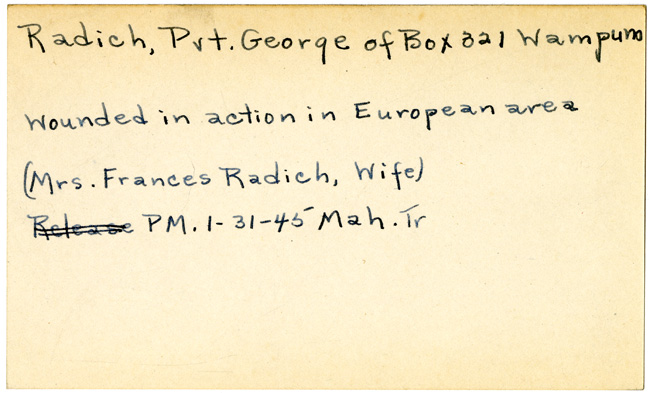 Radich, Pvt. George of Box 321 Wampum
Wounded in action in European area
(Mrs. Frances Radich, Wife)
Release PM. 1-31-45 Mah. Tr